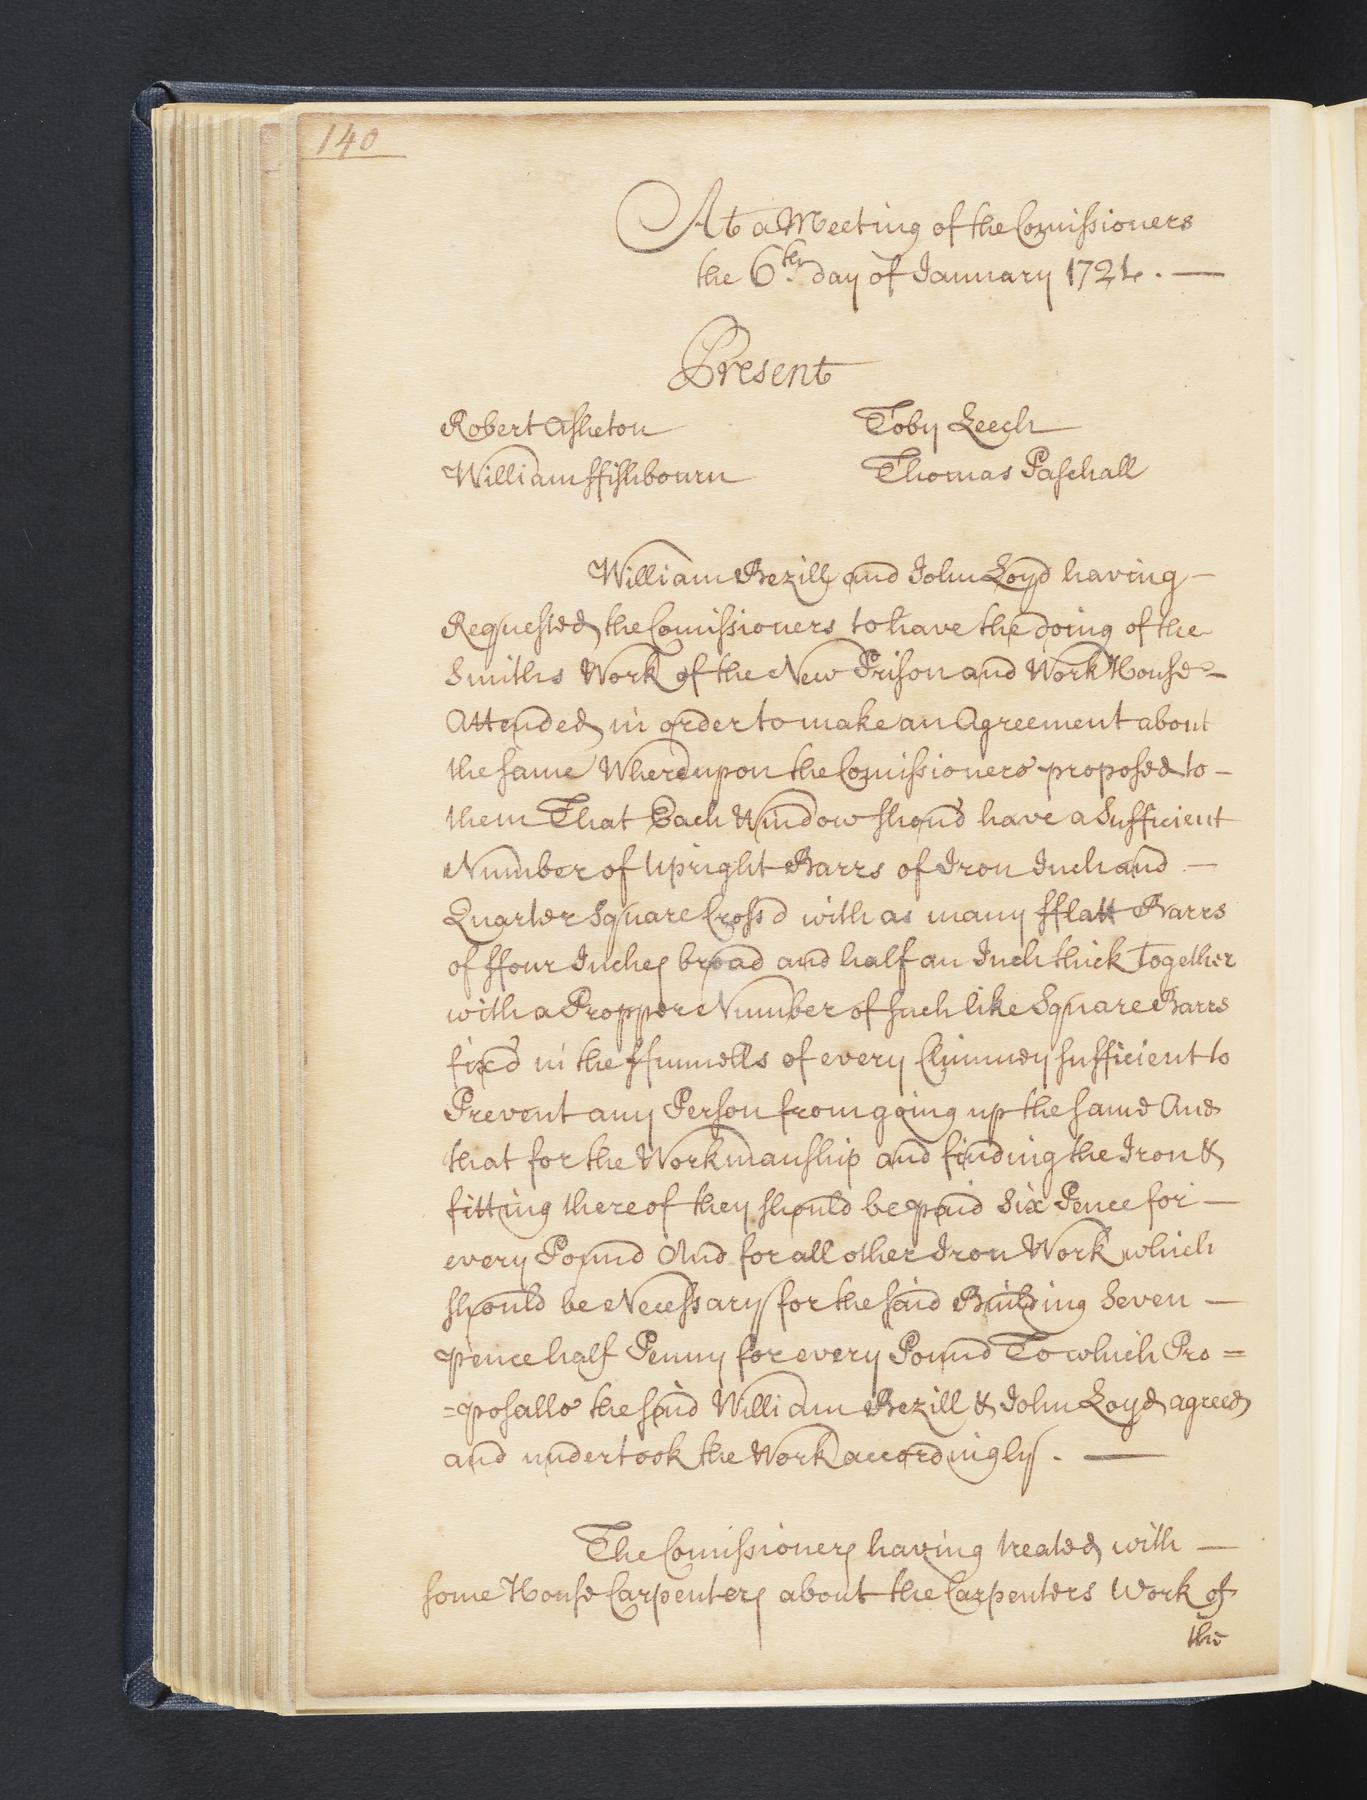 140
At a Meeting of the Comissioners
the 6th day of January 1724. —
Present
Robert Asheton Toby Leech
William ffishbourn Thomas Paschall
William Bezill and John Loyd having —
Requested the Comissioners to have the doing of the
Smiths Work of the New Prison and Work House —
Attended in order to make an Agreement about
the same Whereupon the Comissioners proposed to —
them That Each Window shou'd have a Sufficient
Number of Upright Barrs of Iron Inch and —
Quarter Square Cross'd with as many fflatt Barrs
of ffour Inches broad and half an Inch thick Together
with a Propper Number of such like Square Barrs
fix'd in the ffunnells of every Chimney sufficient to
Prevent any Person from going up the same And
that for the Workmanship and finding the Iron &
fitting thereof they should be paid Six Pence for —
every Pound And for all other Iron Work which
should be Necessary for the said Building Seven —
pence half Penny for every Pound To which Pro=
=posalls the said William Bezill & John Loyd agreed
and undertook the Work accordingly. —
The Comissioners having treated with —
some House Carpenters about the Carpenters Work of
the